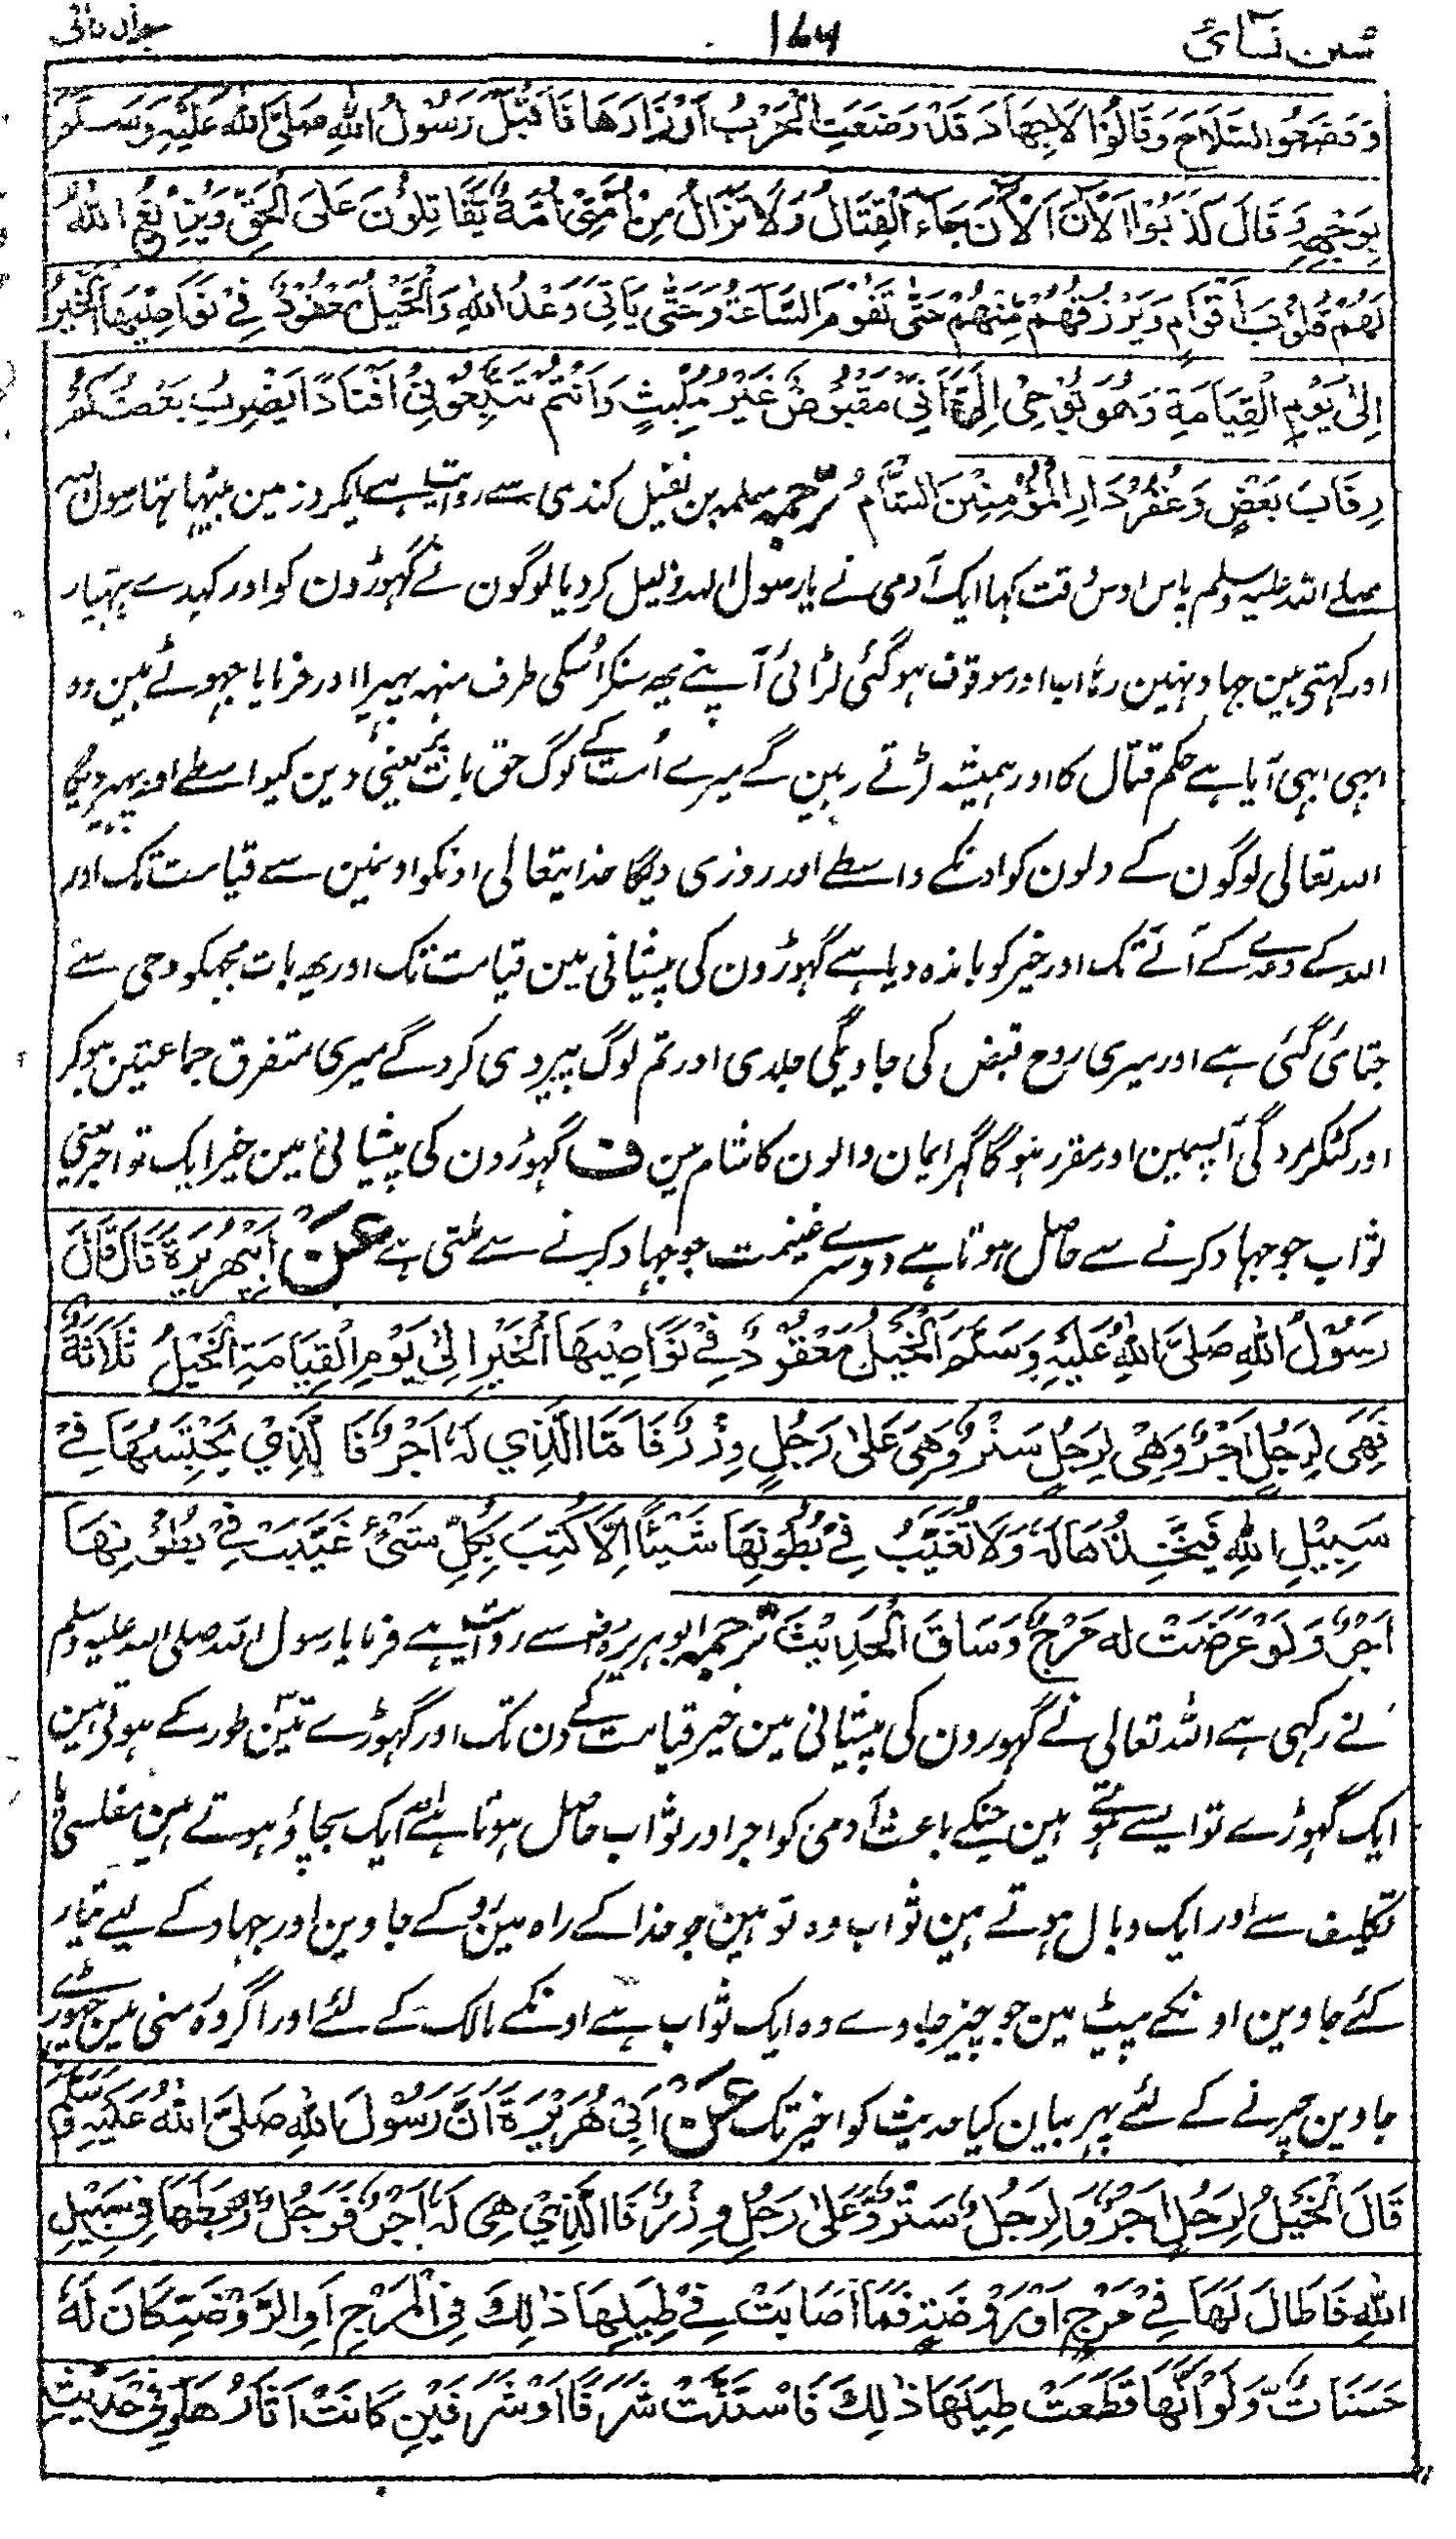 سنن نسائی 164 جلد ثانی
وَوَضَعُوا السِّلَاحَ وَقَالُوْا لَاجِهَادَ قَدْ وَضَعَتِ الْحَرْبُ اَوْزَارَهَا فَاَقْبَلَ رَسُوْلُ اللهِ صَلَّى اللهُ عَلَيْهِ وَسَلَّمَ
بِوَجْهِهٖ وَقَالَ كَذَبُوْا اَلْاٰنَ اَلْاٰنَ جَآءَ الْقِتَالُ وَلَا تَزَالُ مِنْ اُمَّتِىْ اُمَّةٌ يُّقَاتِلُوْنَ عَلَى الْحَقِّ وَيُزِيْغُ اللهُ
لَهُمْ قُلُوْبَ اَقْوَامٍ وَيَرْزُقُهُمْ مِنْهُمْ حَتّٰى تَقُوْمَ السَّاعَةُ وَحَتّٰى يَاْتِىَ وَعْدُ اللهِ وَالْخَيْلُ مَعْقُوْدٌ فِىْ نَوَاصِيْهَا الْخَيْرُ
اِلٰى يَوْمِ الْقِيَامَةِ وَهُوَ يُوْحٰى اِلَىَّ اَنِّىْ مَقْبُوْضٌ غَيْرُ مُلَبَّثٍ وَاَنْتُمْ تَتَّبِعُوْنِىْ اَفْنَادًا يَضْرِبُ بَعْضُكُمْ
رِقَابَ بَعْضٍ وَعُقْرُ دَارِ الْمُؤْمِنِيْنَ الشَّامُ ترجمہ سلمہ بن نفیل کندی سے روایت ہے ایکروز مین بیٹہا تہا رسول اللہ
صلے اللہ علیہ وسلم پاس اوس وقت کہا ایک آدمی نے یا رسول اللہ ذلیل کر دیا لوگون نے گہوڑون کو اور رکہدے ہتہیار
اور کہتی ہین جہاد نہین رہا اب اور موقوف ہو گئی لڑائی آپنے یہ سنکر اُسکی طرف منہہ پہیرا اور فرمایا جہوٹے ہین وہ
ابہی ابہی آیا ہے حکم قتال کا اور ہمیشہ لڑتے رہین گے میرے اُمت کے لوگ حق بات پر یعنی دین کیواسطے اور پہیر دیگا
اللہ تعالی لوگون کے دلون کو اونکے واسطے اور روزی دیگا خدایتعالی اونکو اونہین سے قیامت تک اور
اللہ کے وعدے کے آنے تک اور خیر کو باندہ دیا ہے گہوڑون کی پیشانی مین قیامت تک اور یہ بات مجہکو وحی سے
جتائی گئی ہے اور میری روح قبض کی جاویگی جلدی اور تم لوگ پیروی کروگے میری متفرق جماعتین ہو کر
اور کٹکر مروگی آپسمین اور مقرر ہوگا گہر ایمان والون کا شام مین ف گہوڑون کی پیشانی مین خیر ایک تو اجر یعنی
ثواب جو جہاد کرنے سے حاصل ہوتا ہے دوسرے غنیمت جو جہاد کرنے سے ملتی ہے عَنْ اَبِىْ هُرَيْرَةَ قَالَ قَالَ
رَسُوْلُ اللهِ صَلَّى اللهُ عَلَيْهِ وَسَلَّمَ اَلْخَيْلُ مَعْقُوْدٌ فِىْ نَوَاصِيْهَا الْخَيْرُ اِلٰى يَوْمِ الْقِيَامَةِ اَلْخَيْلُ ثَلَاثَةٌ
فَهِىَ لِرَجُلٍ اَجْرٌ وَهِىَ لِرَجُلٍ سَتْرٌ وَهِىَ عَلٰى رَجُلٍ وِزْرٌ فَاَمَّا الَّذِىْ لَهٗ اَجْرٌ فَالَّذِىْ يَحْتَبِسُهَا فِىْ
سَبِيْلِ اللهِ فَيَتَّخِذُهَا لَهٗ وَلَا تُغَيِّبُ فِىْ بُطُوْنِهَا شَيْئًا اِلَّا كُتِبَ بِكُلِّ شَىْءٍ غَيَّبَتْ فِىْ بُطُوْنِهَا
اَجْرٌ وَلَوْ عَرَضَتْ لَه مَرْجٌ وَسَاقَ الْحَدِيْثَ ترجمہ ابو ہریرہ رض سے روایت ہے فرمایا رسول اللہ صلی اللہ علیہ وسلم
نے رکہی ہے اللہ تعالی نے گہورون کی پیشانی مین خیر قیامت کے دن تک اور گہوڑے تین طور کے ہوتے ہین
ایک گہوڑے تو ایسے ہوتے ہین جنکے باعث آدمی کو اجر اور ثواب حاصل ہوتا ہے ایک بچاؤ ہوتے ہین مفلسی یا
تکلیف سے اور ایک وبال ہوتے ہین ثواب وہ تو ہین جو خدا کے راہ مین روکے جاوین اور جہاد کے لیے تیار
کئے جاوین اونکے پیٹ مین جو چیز جاوے وہ ایک ثواب ہے اونکے مالک کے لئے اور اگر وہ منی مین چہوڑے
جاوین چرنے کے لئے پہر بیان کیا حدیث کو اخیر تک عَنْ اَبِىْ هُرَيْرَةَ اَنَّ رَسُوْلَ اللهِ صَلَّى اللهُ عَلَيْهِ وَسَلَّمَ
قَالَ الْخَيْلُ لِرَجُلٍ اَجْرٌ وَلِرَجُلٍ سَتْرٌ وَّعَلٰى رَجُلٍ وِزْرٌ فَاالَّذِىْ هِىَ لَهٗ اَجْرٌ فَرَجُلٌ رَبَطَهَا فِىْ سَبِيْلِ
اللهِ فَاَطَالَ لَهَا فِىْ مَرْجٍ اَوْ رَوْضَةٍ فَمَا اَصَابَتْ فِىْ طِيَلِهَا ذٰلِكَ فِى الْمَرْجِ اَوِ الرَّوْضَةِ كَانَ لَهٗ
حَسَنَاتٌ وَّلَوْ اَنَّهَا قَطَعَتْ طِيَلَهَا ذٰلِكَ فَاسْتَنَّتْ شَرَفًا اَوْ شَرَفَيْنِ كَانَتْ اٰثَارُهَا وَفِىْ حَدِيْثِ